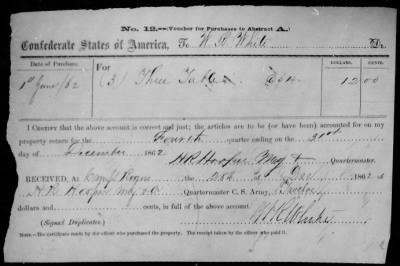 No. 12.—(Voucher for Purchases to Abstract A.)
Confederate States of America, To W. R. White Dr.
Date of Purchase. DOLLARS. CENTS.
For
1st June /62 (3) Three Tables 12 00
I CERTIFY that the above account is correct and just; the articles are to be (or have been) accounted for on
my property return for the Fourth quarter ending on the 31st
day of December 1862
Quartermaster.
RECEIVED, At Camp Rogers the 1862 of
Quartermaster C. S. Army, Twelve
dollars and cents, in full of the above account.
(Signed Duplicates.) W R White
NOTE.—The certificate made by the officer who purchased the property. The receipt taken by the officer who paid it.